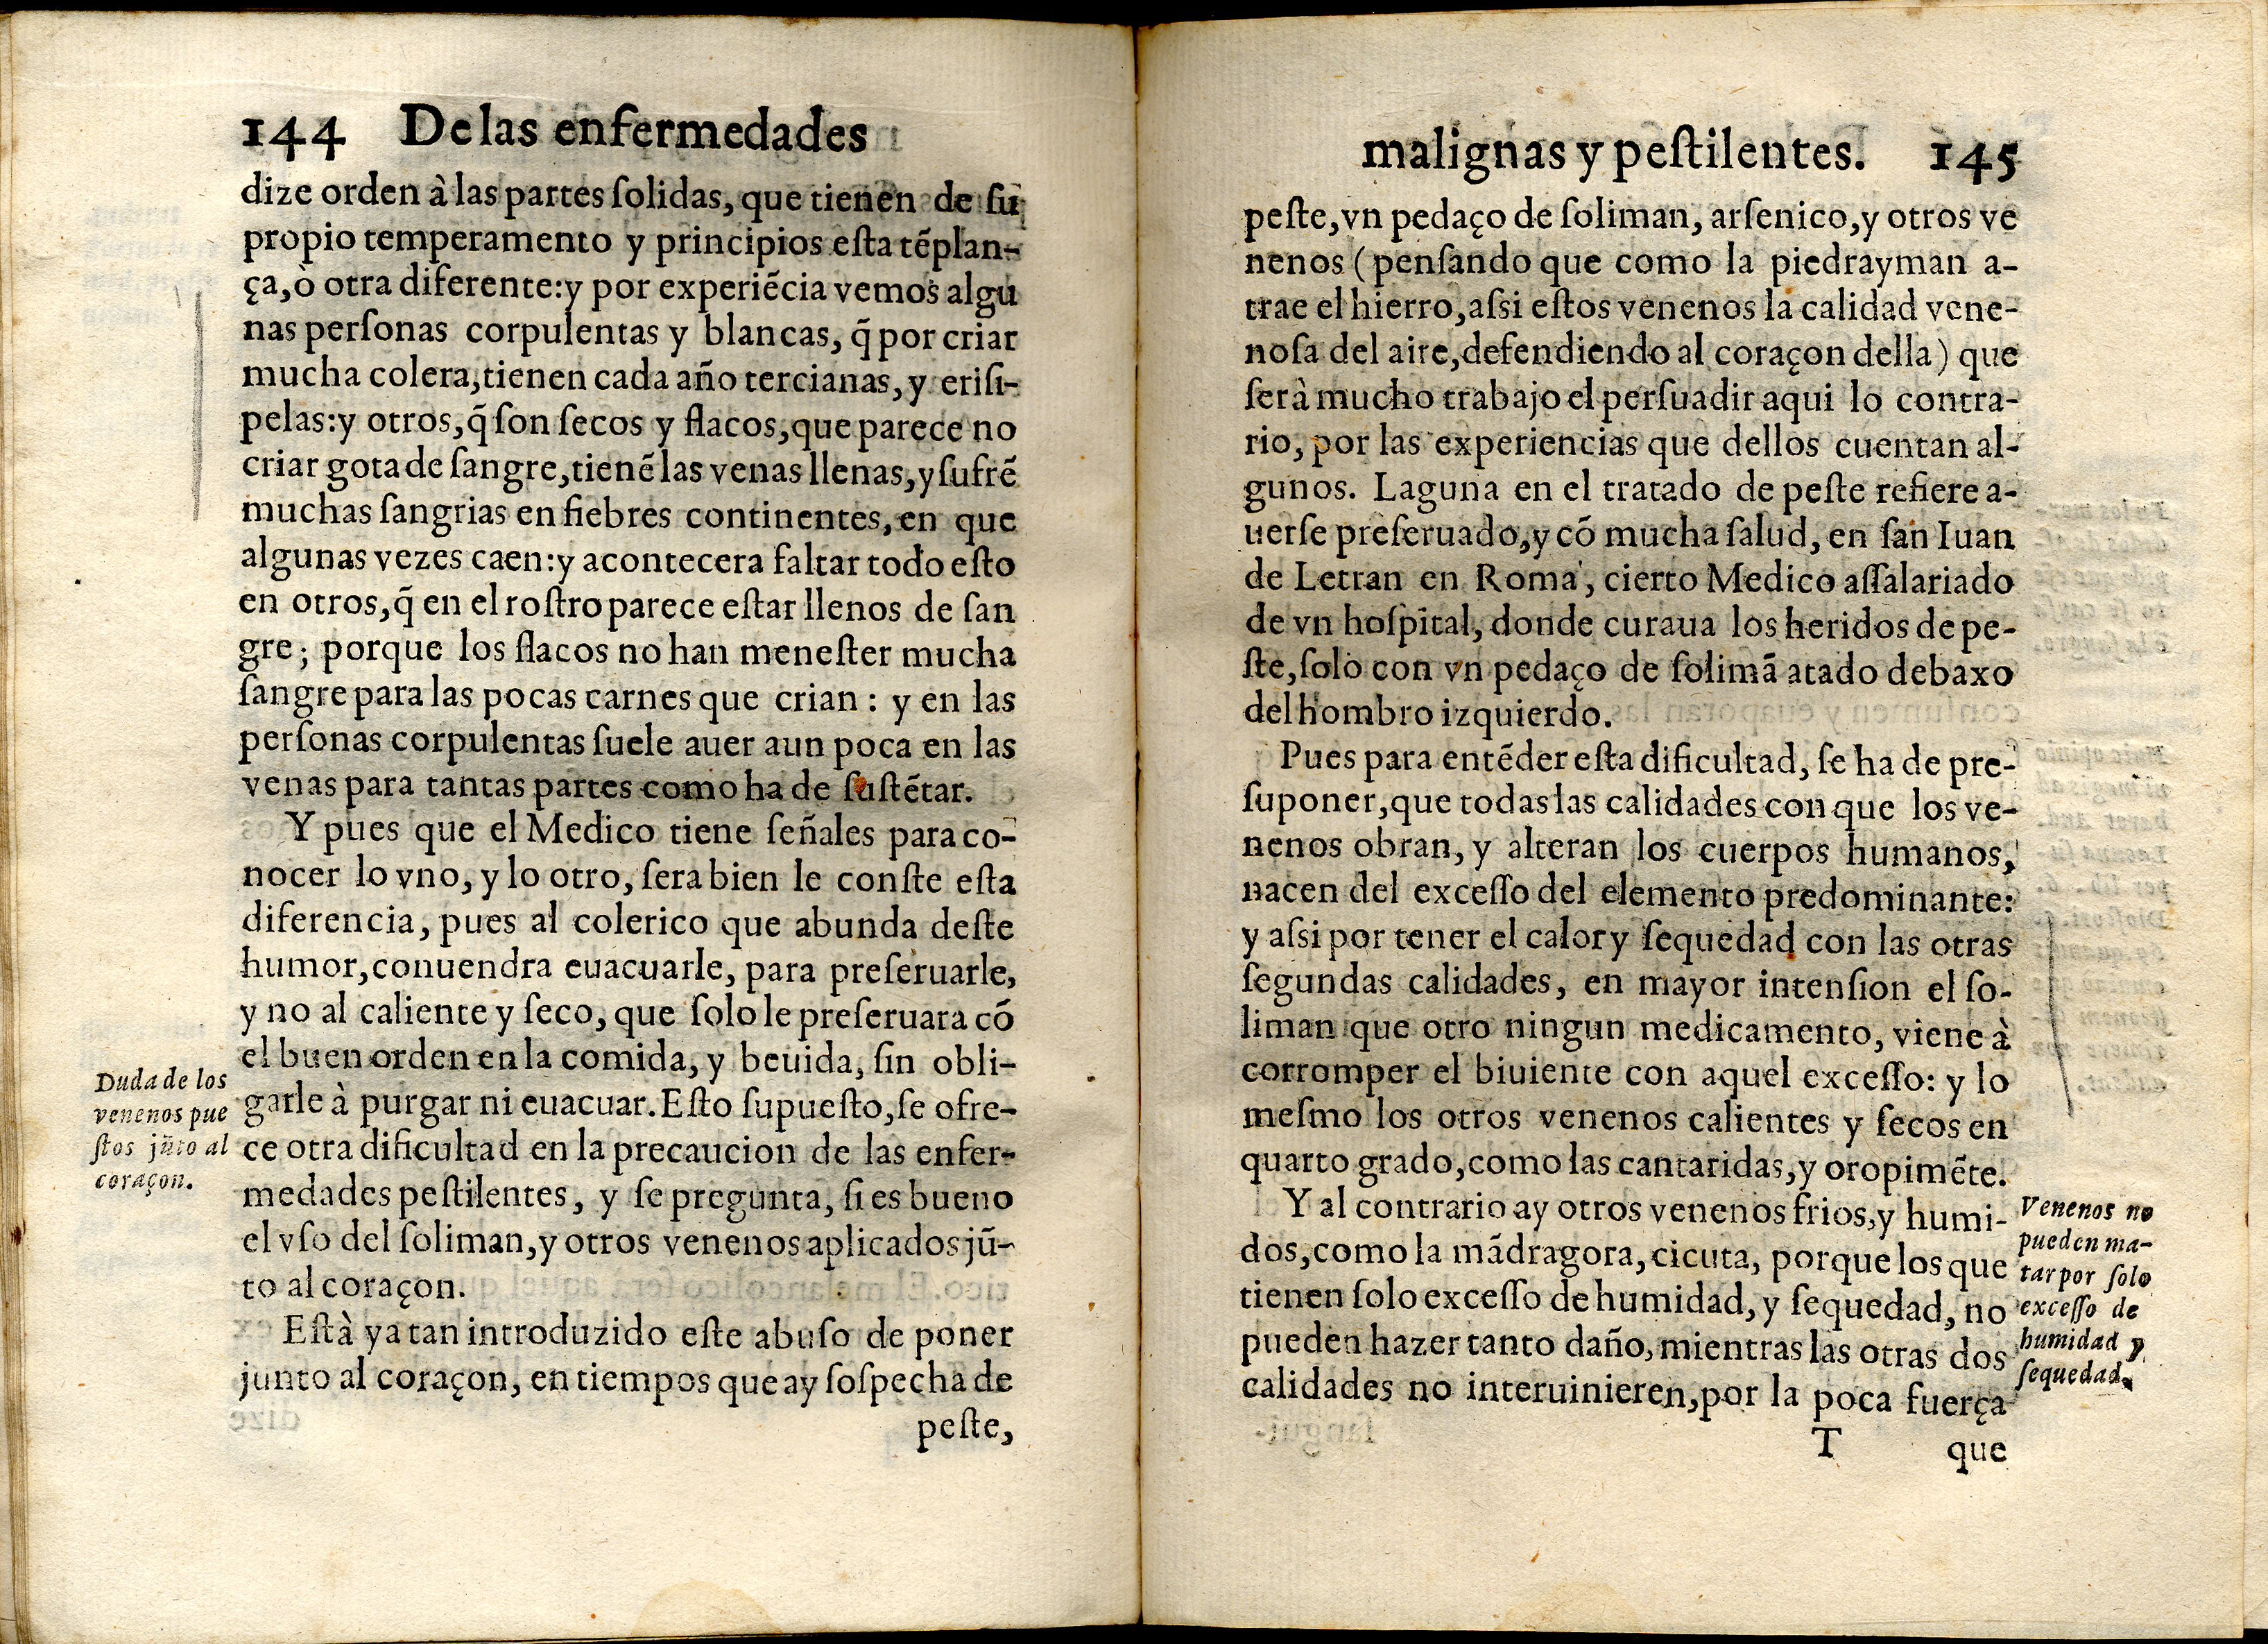 144 De las enfermedades
dize orden à las partes ſolidas, que tienen de ſu
propio temperamento y principios eſta tẽplan-
ça, ò otra diferente: y por experiẽcia vemos algu
nas perſonas corpulentas y blancas, q̃ por criar
mucha colera, tienen cada año tercianas, y eriſi-
pelas: y otros, q̃ ſon ſecos y flacos, que parece no
criar gota de ſangre, tienẽ las venas llenas, y ſufrẽ
muchas ſangrias en fiebres continentes, en que
algunas vezes caen: y acontecera faltar todo eſto
en otros, q̃ en el roſtro parece eſtar llenos de ſan
gre; porque los flacos no han meneſter mucha
ſangre para las pocas carnes que crian : y en las
perſonas corpulentas ſuele auer aun poca en las
venas para tantas partes como ha de ſuſtẽtar.
Y pues que el Medico tiene ſeñales para co-
nocer lo vno, y lo otro, ſera bien le conſte eſta
diferencia, pues al colerico que abunda deſte
humor, conuendra euacuarle, para preſeruarle,
y no al caliente y ſeco, que ſolo le preſeruara cõ
el buen orden en la comida, y beuida, ſin obli-
garle à purgar ni euacuar. Eſto ſupueſto, ſe ofre-
ce otra dificultad en la precaucion de las enfer-
medades peſtilentes, y ſe pregunta, ſi es bueno
el vſo del ſoliman, y otros venenos aplicados jũ-
to al coraçon.
Eſtà ya tan introduzido eſte abuſo de poner
junto al coraçon, en tiempos que ay ſoſpecha de
peſte,
Duda de los
venenos pue
ſtos jũto al
coraçon.
malignas y peſtilentes. 145
peſte, vn pedaço de ſoliman, arſenico, y otros ve
nenos (penſando que como la piedrayman a-
trae el hierro, aſsi eſtos venenos la calidad vene-
noſa del aire, defendiendo al coraçon della) que
ſerà mucho trabajo el perſuadir aqui lo contra-
rio, por las experiencias que dellos cuentan al-
gunos. Laguna en el tratado de peſte refiere a-
uerſe preſeruado, y cõ mucha ſalud, en ſan Iuan
de Letran en Roma, cierto Medico aſſalariado
de vn hoſpital, donde curaua los heridos de pe-
ſte, ſolo con vn pedaço de ſolimã atado debaxo
del hombro izquierdo.
Pues para entẽder eſta dificultad, ſe ha de pre-
ſuponer, que todas las calidades con que los ve-
nenos obran, y alteran los cuerpos humanos,
nacen del exceſſo del elemento predominante:
y aſsi por tener el calor y ſequedad con las otras
ſegundas calidades, en mayor intenſion el ſo-
liman que otro ningun medicamento, viene à
corromper el biuiente con aquel exceſſo: y lo
meſmo los otros venenos calientes y ſecos en
quarto grado, como las cantaridas, y oropimẽte.
Y al contrario ay otros venenos frios, y humi-
dos, como la mãdragora, cicuta, porque los que
tienen ſolo exceſſo de humidad, y ſequedad, no
pueden hazer tanto daño, mientras las otras dos
calidades no interuinieren, por la poca fuerça
T que
Venenos no
pueden ma-
tar por ſolo
exceſſo de
humidad y
ſequedad.